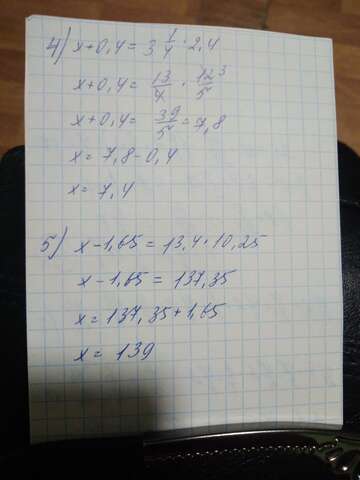 4) x+0,4= 3 1/4 · 2,4
x+0,4= 13/4 · 12³/5
x+0,4= 39/5 = 7,8
x= 7,8-0,4
x= 7,4
5) x-1,65 = 13,4·10,25
x-1,65 = 137,35
x= 137,35+1,65
x= 139